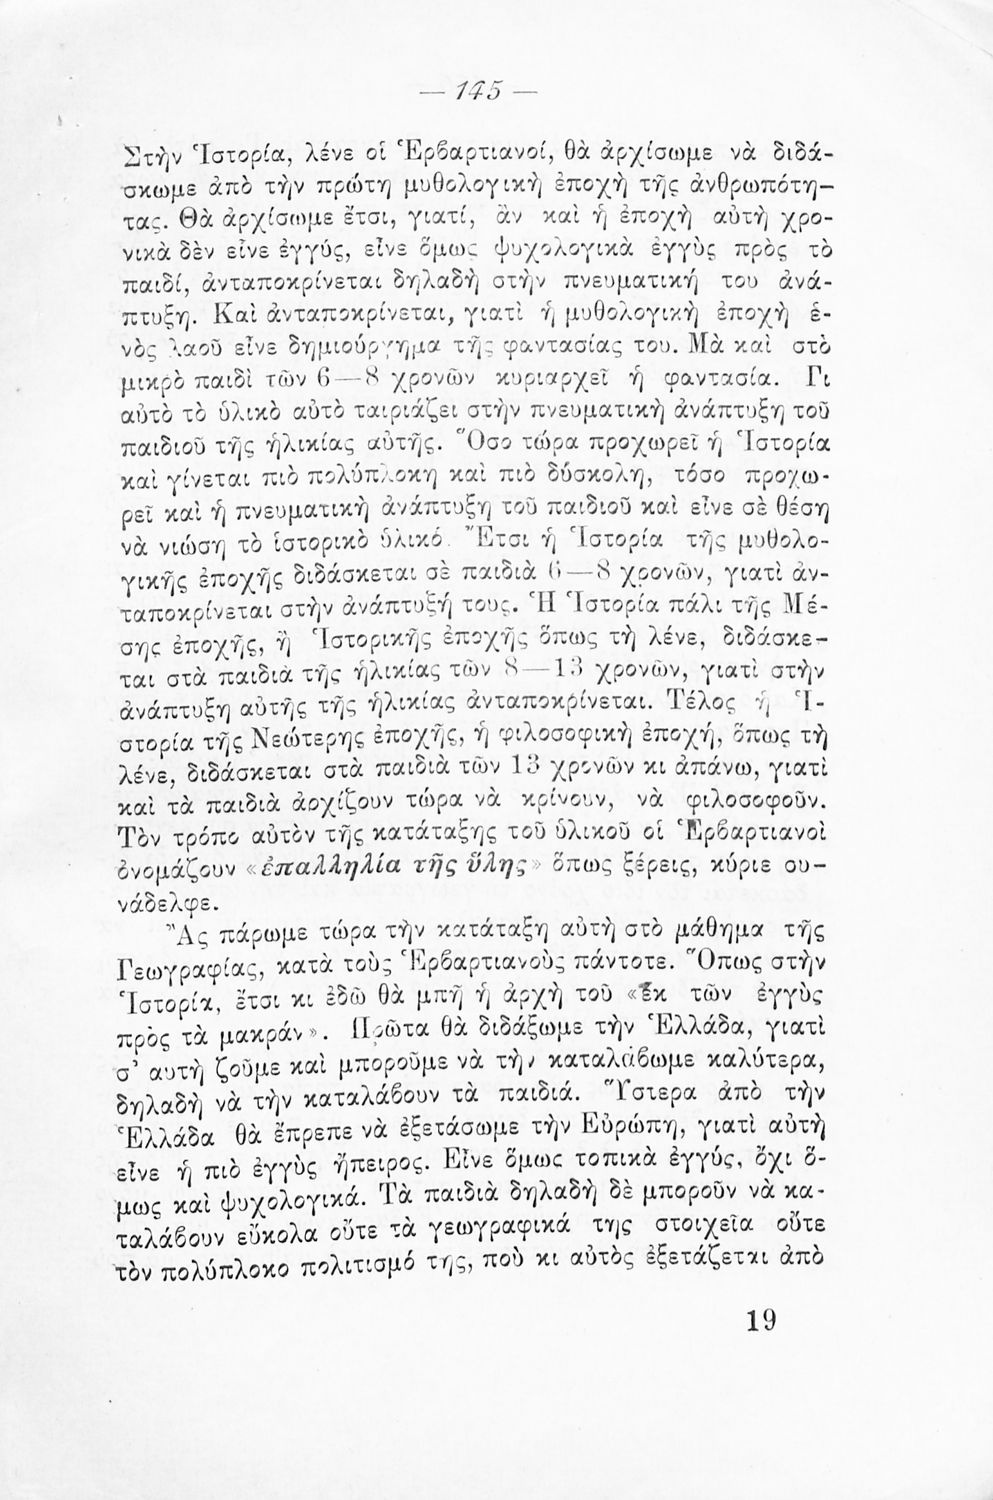 — 145 —
Στὴν Ἱστορία, λένε οἱ Ἑρβαρτιανοί, θὰ ἀρχίσωμε νὰ διδά-
σκωμε ἀπὸ τὴν πρώτη μυθολογικὴ ἐποχὴ τῆς ἀνθρωπότη-
τας. Θὰ ἀρχίσωμε ἔτσι, γιατί, ἂν καὶ ἡ ἐποχὴ αὐτὴ χρο-
νικὰ δὲν εἶνε ἐγγύς, εἶνε ὅμως ψυχολογικὰ ἐγγὺς πρὸς τὸ
παιδί, ἀνταποκρίνεται δηλαδὴ στὴν πνευματική του ἀνά-
πτυξη. Καὶ ἀνταποκρίνεται, γιατὶ ἡ μυθολογικὴ ἐποχὴ ἑ-
νὸς λαοῦ εἶνε δημιούργημα τῆς φαντασίας του. Μὰ καὶ στὸ
μικρὸ παιδὶ τῶν 6—8 χρονῶν κυριαρχεῖ ἡ φαντασία. Γι
αὐτὸ τὸ ὑλικὸ αὐτὸ ταιριάζει στὴν πνευματικὴ ἀνάπτυξη τοῦ
παιδιοῦ τῆς ἡλικίας αὐτῆς. Ὅσο τώρα προχωρεῖ ἡ Ἱστορία
καὶ γίνεται πιὸ πολύπλοκη καὶ πιὸ δύσκολη, τόσο προχω-
ρεῖ καὶ ἡ πνευματικὴ ἀνάπτυξη τοῦ παιδιοῦ καὶ εἶνε σὲ θέση
νὰ νιώση τὸ ἱστορικὸ ὑλικό. Ἔτσι ἡ Ἱστορία τῆς μυθολο-
γικῆς ἐποχῆς διδάσκεται σὲ παιδιὰ 6—8 χρονῶν, γιατὶ ἀν-
ταποκρίνεται στὴν ἀνάπτυξή τους. Ἡ Ἱστορία πάλι τῆς Μέ-
σης ἐποχῆς, ἢ Ἱστορικῆς ἐποχῆς ὅπως τὴ λένε, διδάσκε-
ται στὰ παιδιὰ τῆς ἡλικίας τῶν 8—13 χρονῶν, γιατὶ στὴν
ἀνάπτυξη αὐτῆς τῆς ἡλικίας ἀνταποκρίνεται. Τέλος ἡ Ἱ-
στορία τῆς Νεώτερης ἐποχῆς, ἡ φιλοσοφικὴ ἐποχή, ὅπως τὴ
λένε, διδάσκεται στὰ παιδιὰ τῶν 13 χρονῶν κι ἀπάνω, γιατὶ
καὶ τὰ παιδιὰ ἀρχίζουν τώρα νὰ κρίνουν, νὰ φιλοσοφοῦν.
Τὸν τρόπο αὐτὸν τῆς κατάταξης τοῦ ὑλικοῦ οἱ Ἑρβαρτιανοὶ
ὀνομάζουν «ἐπαλληλία τῆς ὕλης» ὅπως ξέρεις, κύριε συ-
νάδελφε.
Ἂς πάρωμε τώρα τὴν κατάταξη αὐτὴ στὸ μάθημα τῆς
Γεωγραφίας, κατὰ τοὺς Ἑρβαρτιανοὺς πάντοτε. Ὅπως στὴν
Ἱστορία, ἔτσι κι ἐδῶ θὰ μπῆ ἡ ἀρχὴ τοῦ «ἐκ τῶν ἐγγὺς
πρὸς τὰ μακράν». Πρῶτα θὰ διδάξωμε τὴν Ἑλλάδα, γιατὶ
σ' αυτὴ ζοῦμε καὶ μποροῦμε νὰ τὴν καταλάβωμε καλύτερα,
δηλαδὴ νὰ τὴν καταλάβουν τὰ παιδιά. Ὕστερα ἀπὸ τὴν
Ἑλλάδα θὰ ἔπρεπε νὰ ἐξετάσωμε τὴν Εὐρώπη, γιατὶ αὐτὴ
εἶνε ἡ πιὸ ἐγγὺς ἤπειρος. Εἶνε ὅμως τοπικὰ ἐγγύς, ὄχι ὅ-
μως καὶ ψυχολογικά. Τὰ παιδιὰ δηλαδὴ δὲ μποροῦν νὰ κα-
ταλάβουν εὔκολα οὔτε τὰ γεωγραφικά της στοιχεῖα οὔτε
τὸν πολύπλοκο πολιτισμό της, ποὺ κι αὐτὸς ἐξετάζεται ἀπὸ
19